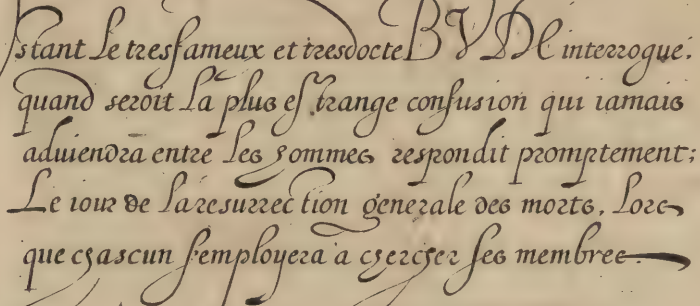 Estant le tresfameux et tresdocte BVDE interrogué:
quand seroit la plus estrange confusion qui iamais
aduiendra entre les hommes respondit promptement;
Le iour de la resurrection generale des morts. Lors
que chascun s'employera a chercher ses membres.